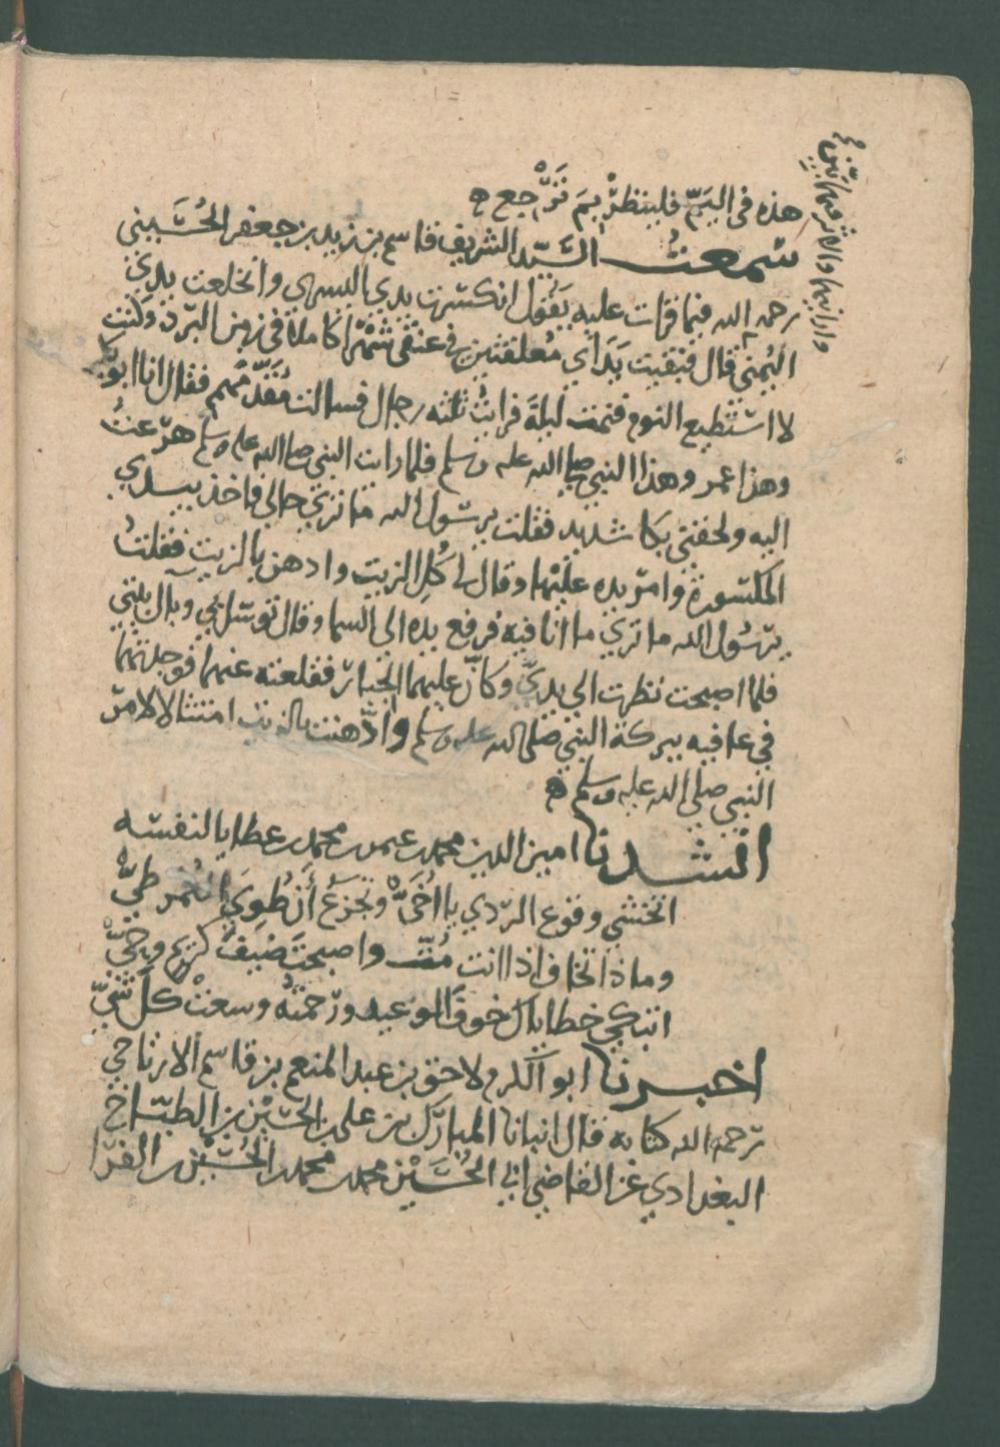 هذه في اليم فلينظر بم ترجع ه
سمعت السيد الشريف قاسم بن زيد بن جعفر الحسيني
رحمه الله فيما قرات عليه يقول انكسرت يدي اليسرى وانخلعت يدي
اليمني قال فبقيت يداي معلقتين في عنقي شهرا كاملا في زمن البرد وكنت
لا استطيع النوم فنمت ليلة فرايت ثلثه رجال فسالت مقدمهم فقال انا ابو بكر
وهذا عمر وهذا النبي صلى الله عليه وسلم فلما رايت النبي صلى الله عليه وسلم هرعت
اليه ولحقني بكا شديد فقلت يرسول الله ما تري حالي فاخذ بيدي
المكسورة وامر يده عليها وقال لي كل الزيت وادهن بالزيت فقلت
يرسول الله ما تري ما انا فيه فرفع يده الي السما وقال توسل بي وبال بيتي
فلما اصبحت نظرت الي يدي وكان عليهما الجبائر فقلعته عنهما فوجدتهما
في عافيه ببركة النبي صلى الله عليه وسلم وادهنت بالزيت امتثالا لامر
النبي صلى الله عليه وسلم ه
انشدنا امين الدين محمد بن عمر بن محمد بن عطايا لنفسه
اتخشي وقوع الردي يا اخي وتجزع ان طوي العمر طي
وماذا تخاف اذا انت مت واصبحت ضيف كريم وحي
اتبكي خطاياك خوف الوعيد ورحمته وسعت كل شي
اخبرنا ابو الكرم لاحق بن عبد المنعم بن قاسم الارتاحي
رحمه الله كتابه قال انبانا المبارك بن علي بن الحسين بن الطباخ
البغدادي عن القاضي ابي الحسين محمد بن محمد بن الحسين بن الفرا